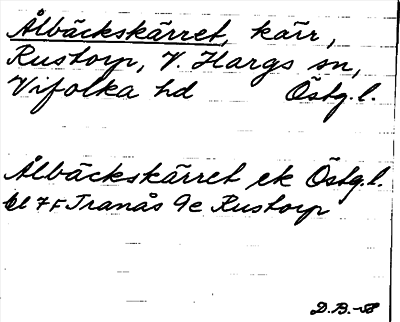 Ålbäckskärret, kärr,
Rustorp, V. Hargs sn,
Vifolka hd Östg.l.
Ålbäckskärret ek Östg.l.
bl 7F Tranås 9c Rustorp
D.B.-58